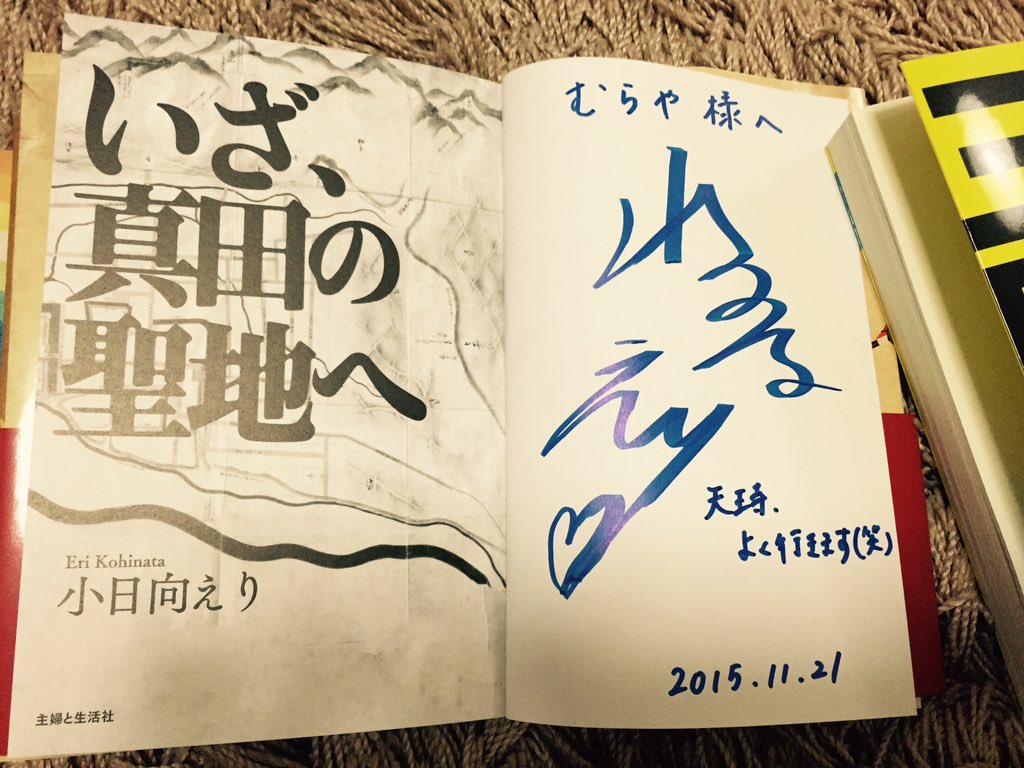 いざ、
真田の
聖地へ
Eri Kohinata
小日向えり
主婦と生活社
むらや様へ
えり
天王寺、
よく行きます(笑)
2015.11.21